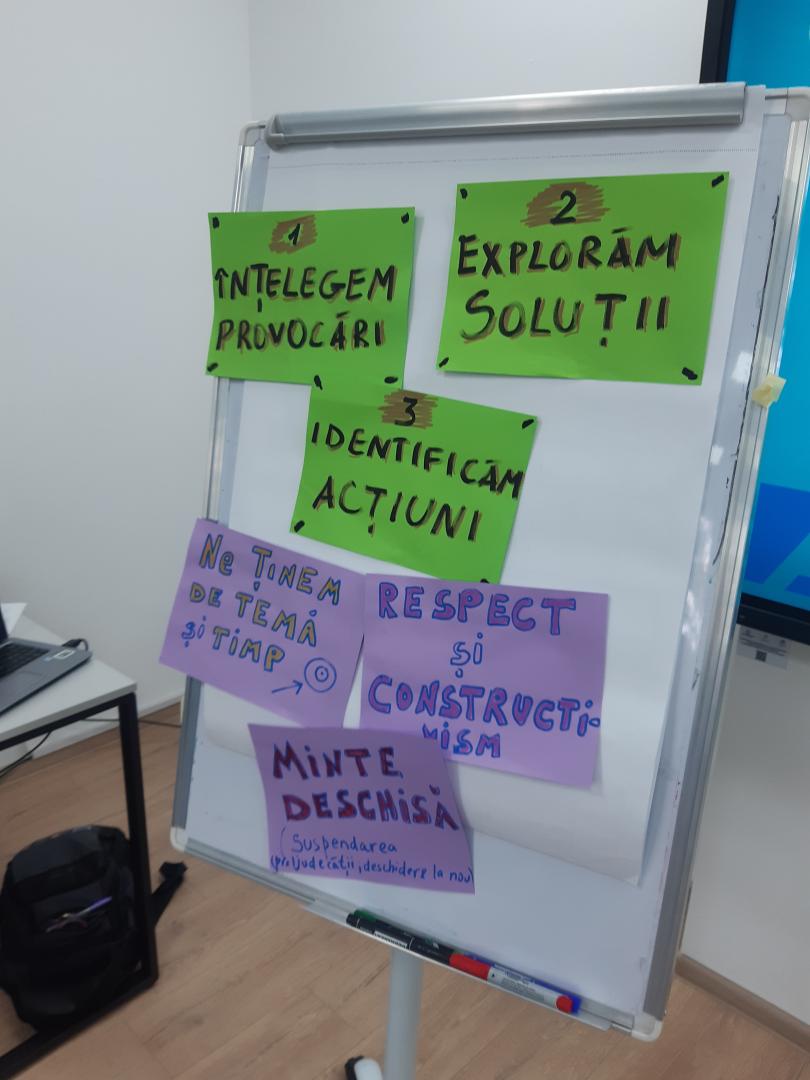 1
ÎNȚELEGEM
PROVOCĂRI
2
EXPLORĂM
SOLUȚII
3
IDENTIFICĂM
ACȚIUNI
Ne ȚINEM
DE TEMĂ
și TIMP
RESPECT
și
CONSTRUCTI-
VISM
MINTE
DESCHISĂ
(Suspendarea
(pre)judecății, deschidere la nou)